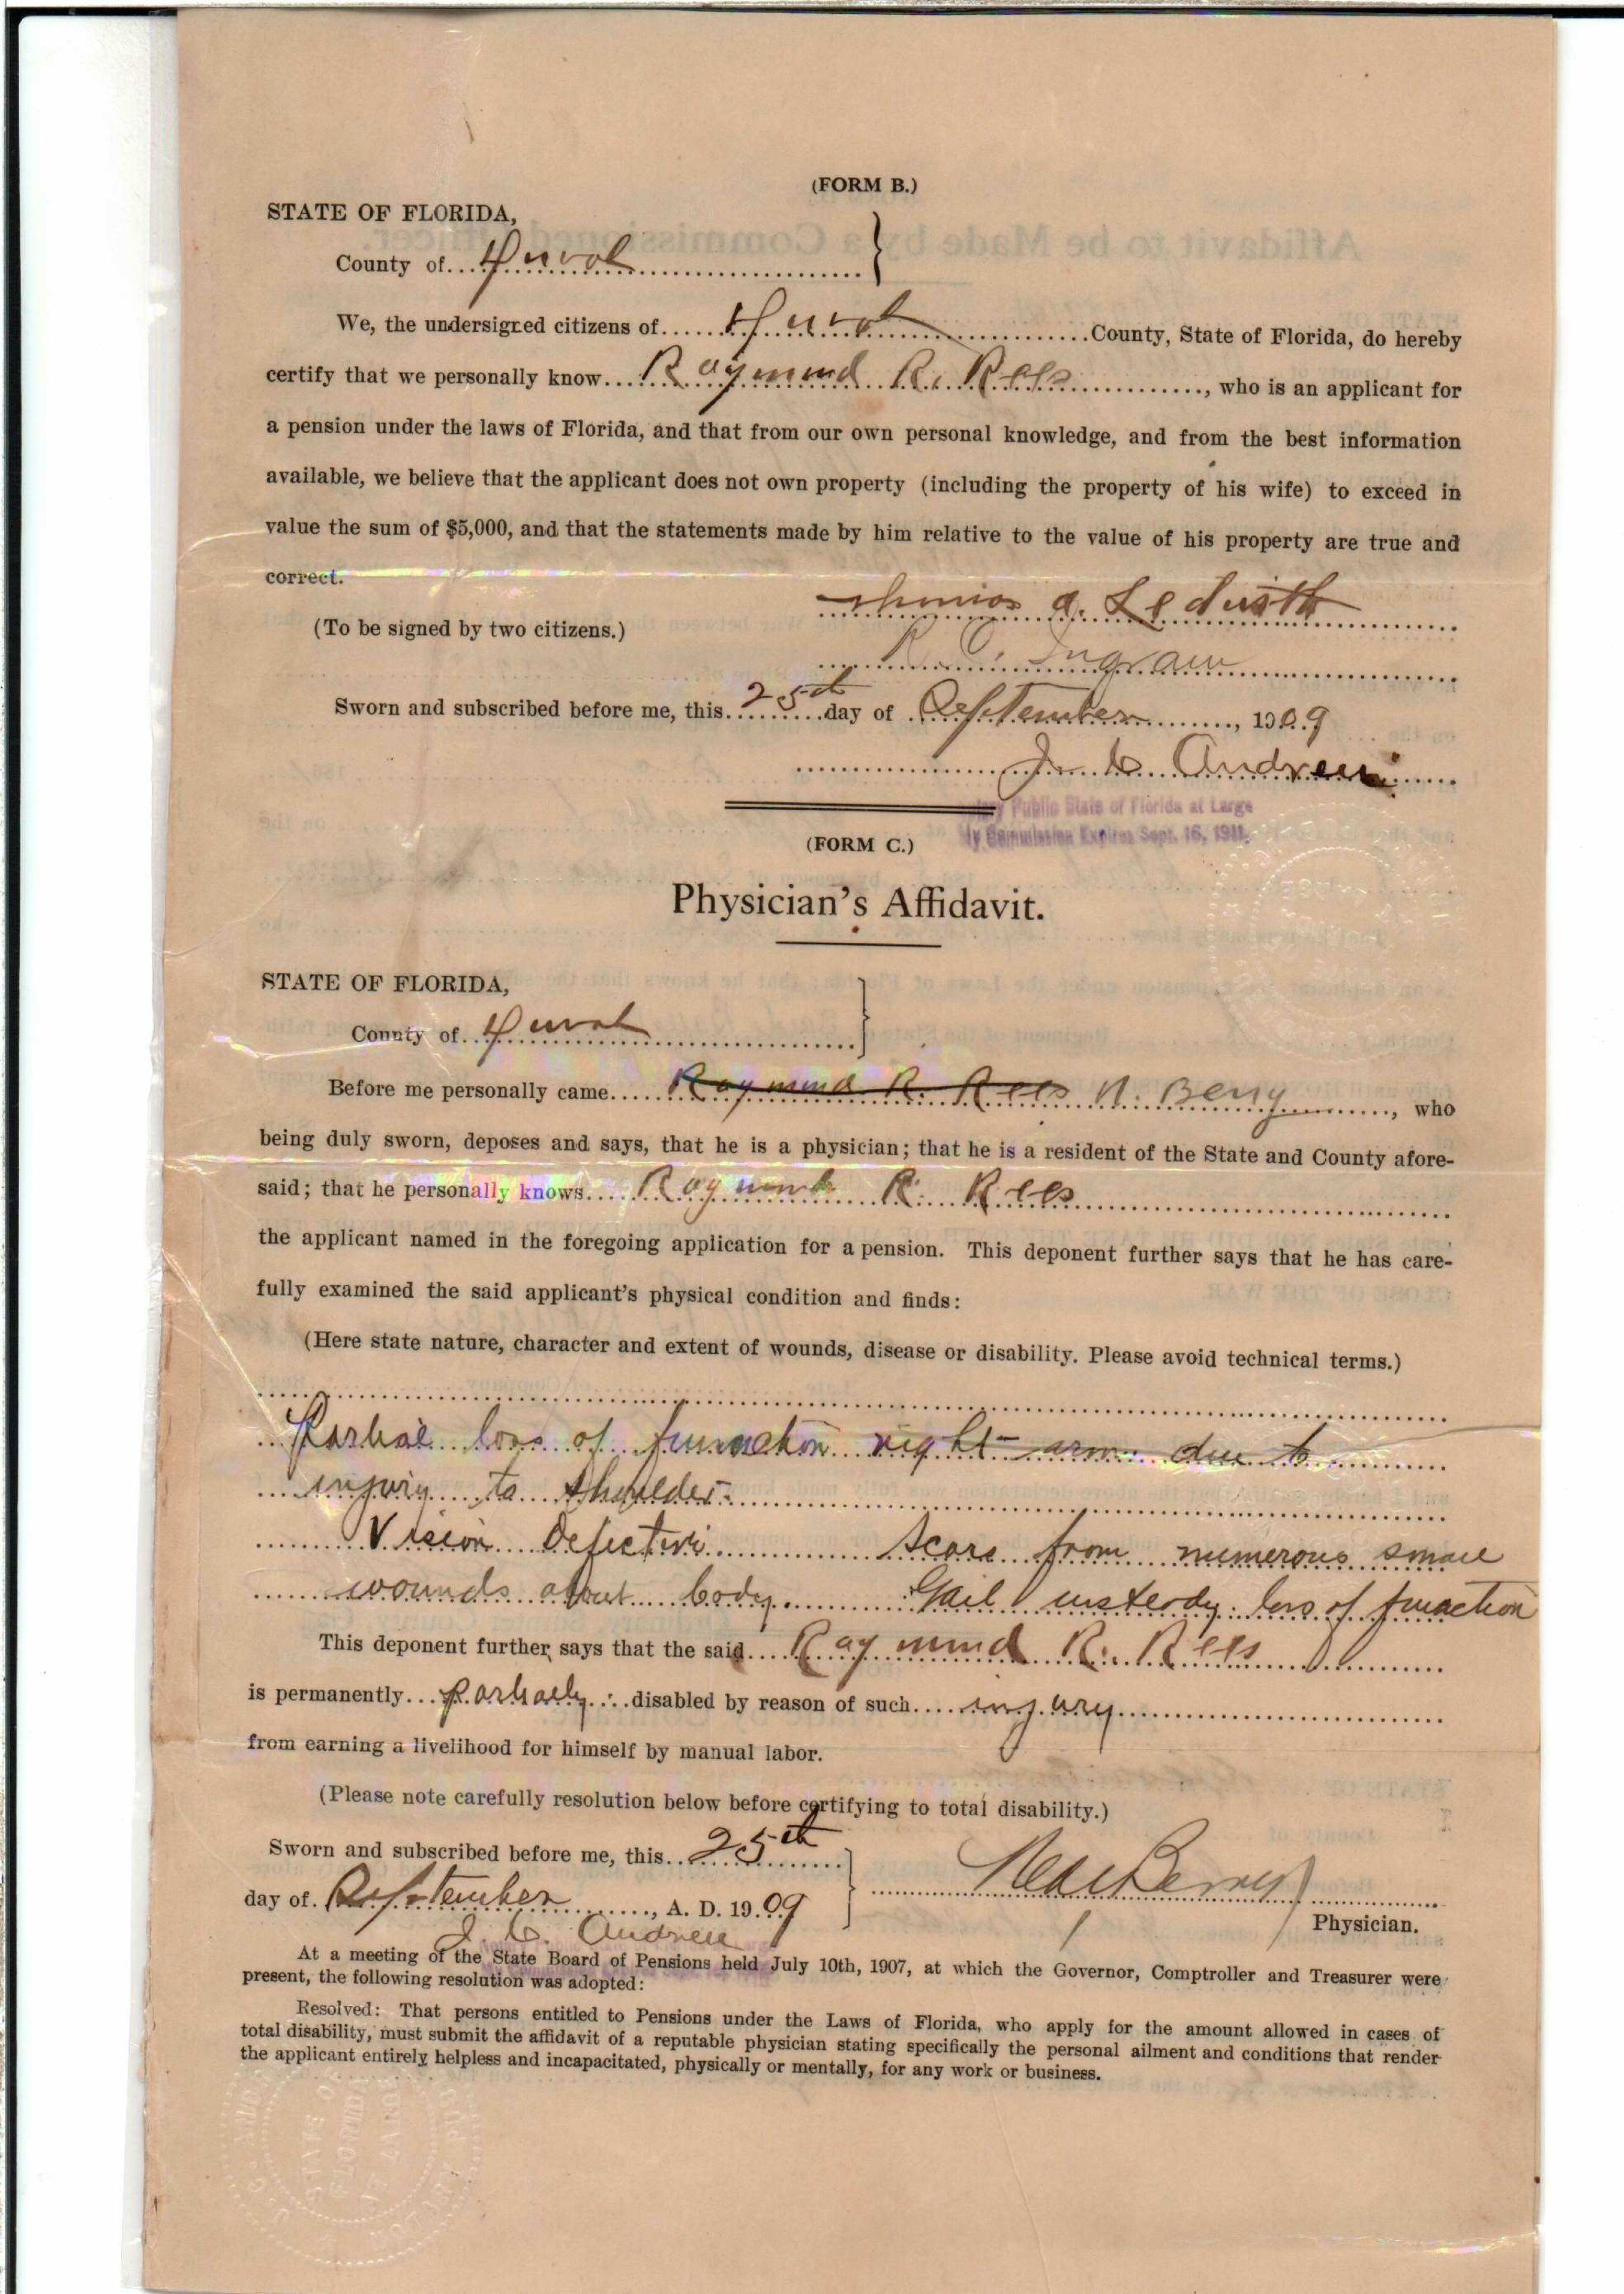 (FORM B.)
STATE OF FLORIDA,
County of Duval
We, the undersigned citizens of Duval County, State of Florida, do hereby
certify that we personally know Raymond R. Rees, who is an applicant for
a pension under the laws of Florida, and that from our own personal knowledge, and from the best information
available, we believe that the applicant does not own property (including the property of his wife) to exceed in
value the sum of $5,000, and that the statements made by him relative to the value of his property are true and
correct.
(To be signed by two citizens.)
Ingram
Sworn and subscribed before me, this 25th day of September, 1909
J. C. Andreu
Public State of Florida at Large
My Commission Expires Sept. 16, 1911.
(FORM C.)
Physician's Affidavit.
STATE OF FLORIDA,
County of Duval
Before me personally came Raymond R. Rees N. Berry, who
being duly sworn, deposes and says, that he is a physician; that he is a resident of the State and County afore-
said; that he personally knows Raymond R. Rees
the applicant named in the foregoing application for a pension. This deponent further says that he has care-
fully examined the said applicant's physical condition and finds:
(Here state nature, character and extent of wounds, disease or disability. Please avoid technical terms.)
Partial loss of function right arm due to
injury to shoulder.
Vision Defective Scars from numerous small
wounds about body. Gait unsteady. loss of function
This deponent further says that the said Raymond R. Rees
is permanently partially disabled by reason of such injury
from earning a livelihood for himself by manual labor.
(Please note carefully resolution below before certifying to total disability.)
Sworn and subscribed before me, this 25th
day of September, A. D. 1909
Berry
Physician.
J. C. Andreu
At a meeting of the State Board of Pensions held July 10th, 1907, at which the Governor, Comptroller and Treasurer were
present, the following resolution was adopted:
Resolved: That persons entitled to Pensions under the Laws of Florida, who apply for the amount allowed in cases of
total disability, must submit the affidavit of a reputable physician stating specifically the personal ailment and conditions that render
the applicant entirely helpless and incapacitated, physically or mentally, for any work or business.